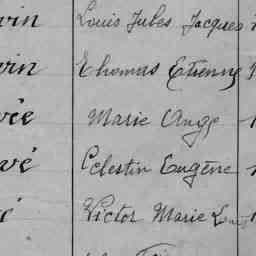 vin Louis Jules Jacques
vin Thomas Etienne
vée Marie Ange
vé Celestin Eugène
é Victor Marie Louis